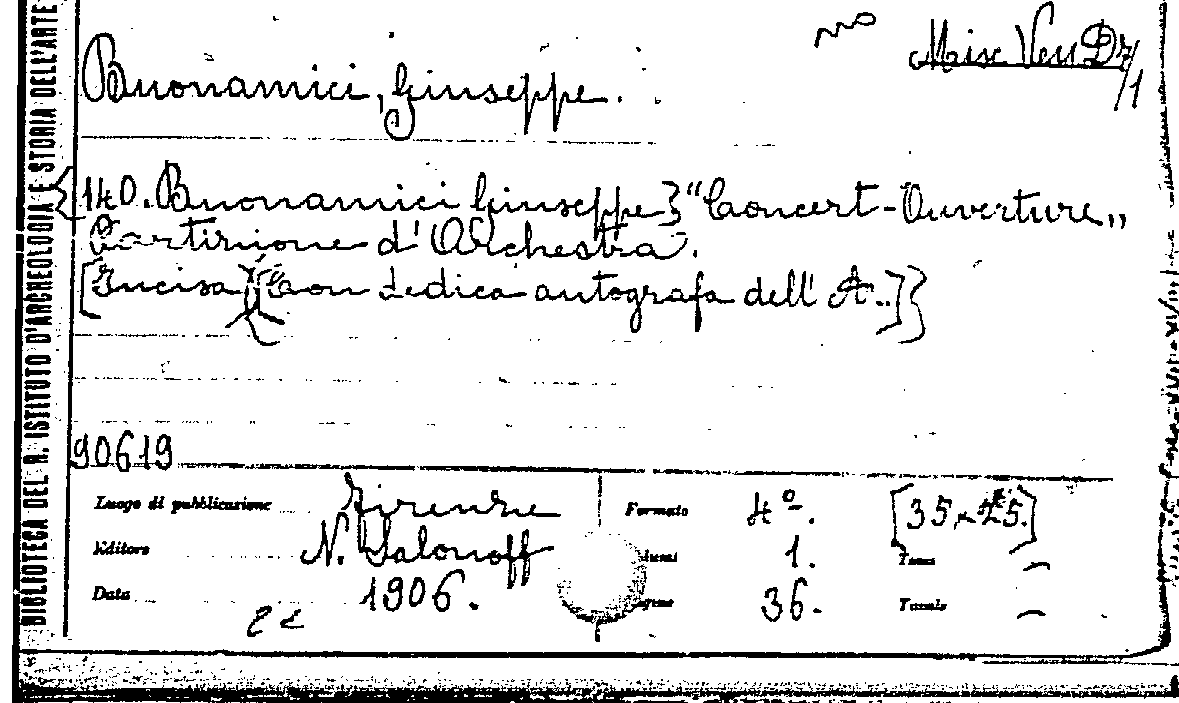 BIBLIOTECA DEL R. ISTITUTO D'ARCHEOLOGIA E STORIA DELL'ARTE
Misc Ven D2/1
Buonamici, Giuseppe.
{140. Buonamici Giuseppe} "Concert-Ouverture„
Partizione d'Orchestra.
[Incisa] [Con dedica autografa dell'A.]}
90619
Luogo di pubblicazione Firenze Formato 4º. [35x25.]
Editore N. Salonoff 1. Tomi –
Data 1906. 36. Tavole –